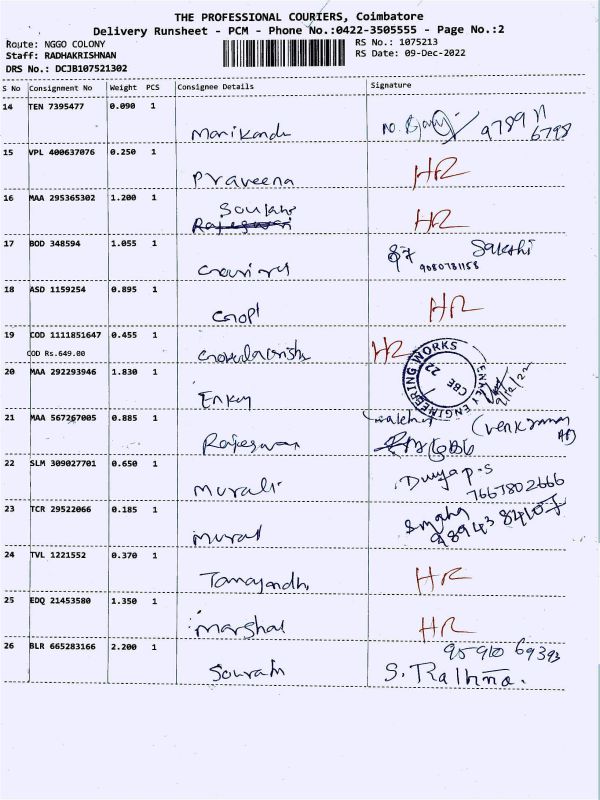 THE PROFESSIONAL COURIERS, Coimbatore
Delivery Runsheet - PCM - Phone No.:0422-3505555 - Page No.:2
Route: NGGO COLONY
RS No.: 1075213
Staff: RADHAKRISHNAN
RS Date: 09-Dec-2022
DRS No.: DCJB107521302
S No Consignment No Weight PCS Consignee Details Signature
14 TEN 7395477 0.090 1 Manikandn 9789
6798
15 VPL 400637076 0.250 1 Praveena HR
16 MAA 295365302 1.200 1 HR
17 BOD 348594 1.055 1 Sakshi
9080781158
18 ASD 1159254 0.895 1 Gopi HR
19 COD 1111851647 0.455 1 HR
COD Rs.649.00
20 MAA 292293946 1.830 1 ENGINEERING WORKS CBE
9/12/22
21 MAA 567267005 0.885 1 Rajeswari
22 SLM 309027701 0.650 1 Murali Divya p.s
7667802666
23 TCR 29522066 0.185 1 Murali
24 TVL 1221552 0.370 1 HR
25 EDQ 21453580 1.350 1 Marshal HR
26 BLR 665283166 2.200 1 Souram 95910 69393